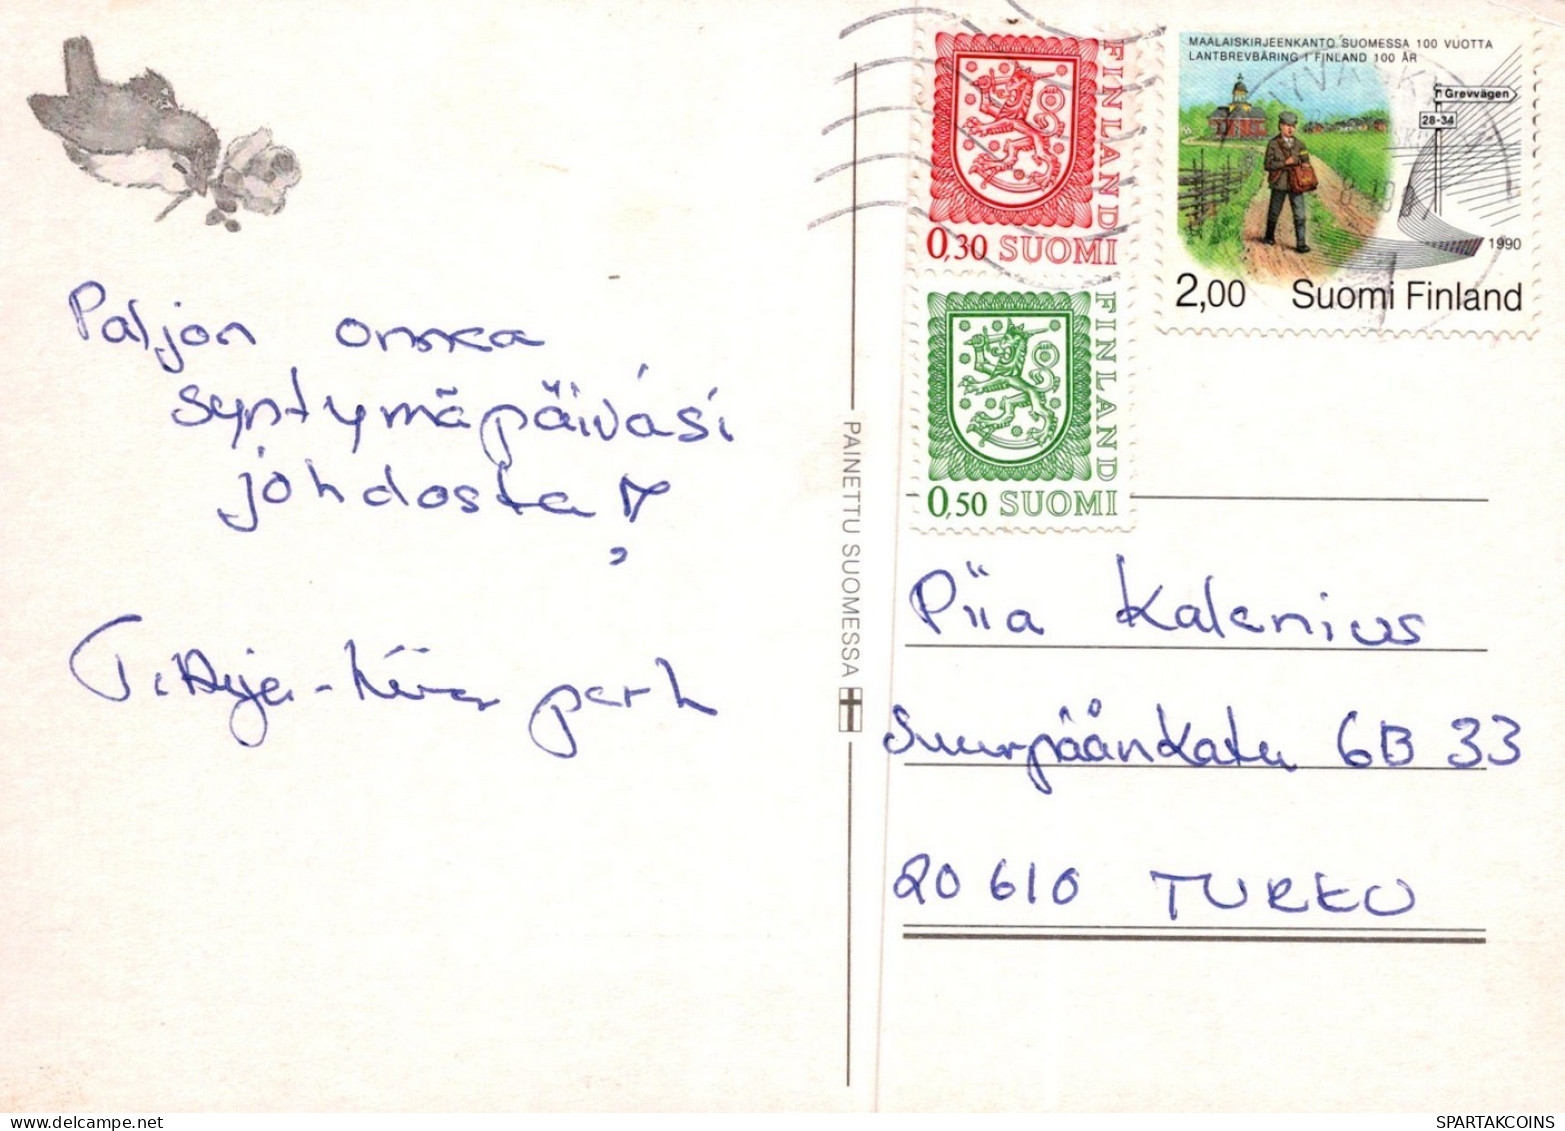 Paljon onnea
syntymäpäiväsi
johdosta!
T. Aija-
perh
PAINETTU SUOMESSA
FINLAND
0,30 SUOMI
FINLAND
0,50 SUOMI
MAALAISKIRJEENKANTO SUOMESSA 100 VUOTTA
LANTBREVBÄRING I FINLAND 100 ÅR
Grevvägen
28-34
1990
2,00 Suomi Finland
Piia Kalenius
Suurpäänkatu 6B 33
20610 TURKU
SPARTAKCOINS